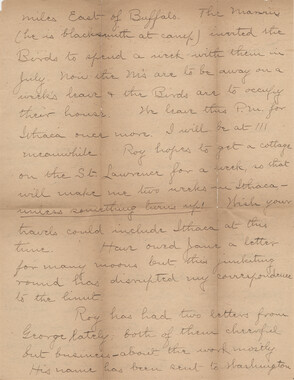 miles East of Buffalo. The Manns
(he is blacksmith at camp) invited the
Byrds to spend a week with them in
July. Now the M's are to be away on a
week's leave & the Byrds are to occupy
their house. We leave this P.M. for
Ithaca once more. I will be at 111
meanwhile. Roy hopes to get a cottage
on the St. Lawrence for a week, so that
will make me two weeks in Ithaca –
unless something turns up! Wish your
travels could include Ithaca at this
time. Have owed Jane a letter
for many moons but this
round has disrupted my correspondence
to the limit.
Roy has had two letters from
George lately, both of them cheerful
but business – about the work mostly.
His name has been sent to Washington